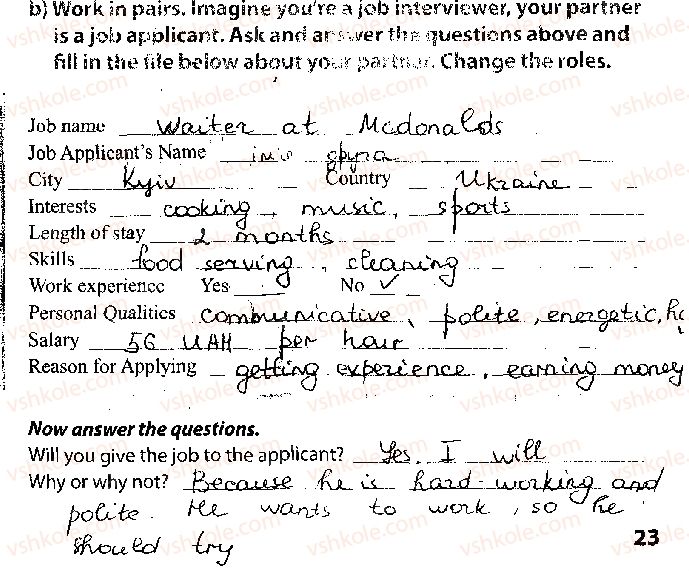 b) Work in pairs. Imagine you're a job interviewer, your partner
is a job applicant. Ask and answer the questions above and
fill in the file below about your partner. Change the roles.
Job name waiter at Mcdonalds
Job Applicant's Name імя друга
City Kyiv Country Ukraine
Interests cooking, music, sports
Length of stay 2 months
Skills food serving, cleaning
Work experience Yes No ✓
Personal Qualities communicative, polite, energetic,
Salary 56 UAH per hour
Reason for Applying getting experience, earning money
Now answer the questions.
Will you give the job to the applicant? Yes. I will
Why or why not? Because he is hard-working and
polite. He wants to work, so he
should try
23